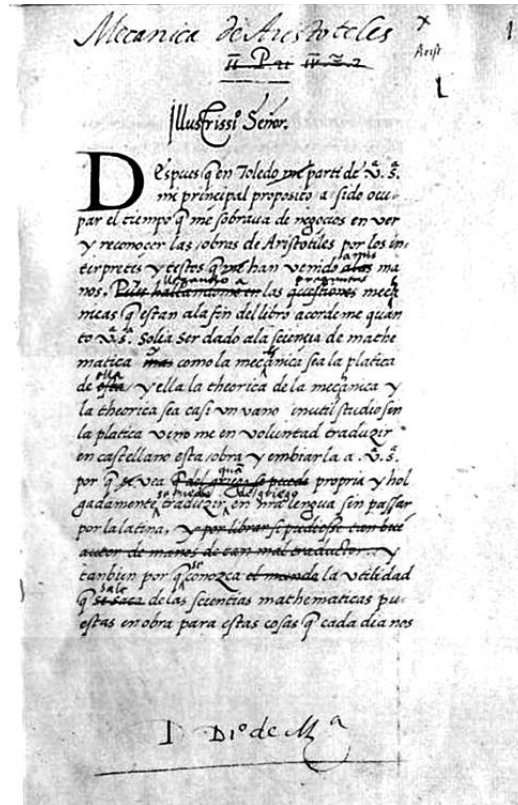 Mecanica de Aristoteles
Arist
1
Illustrissi.º Señor.
Despues q̃ en Toledo me parti de .V.ª S.ª
mi principal proposito a sido ocu-
par el tiempo q̃ me sobraua de negocios en ver
y reconocer las obras de Aristotiles por los in-
terpretes y testos q̃ me han venido a las mis ma
nos. llegando a las preguntas mecá
nicas q̃ estan ala fin del libro acorde me quan
to .V.ª S.ª Solia ser dado ala sciencia de mathe
matica mas como la mecánica sea la platica
de esta ella y ella la theorica de la mecánica y
la theorica sea casi vn vano inutil studio sin
la platica vino me en voluntad traduzir
en castellano esta obra y embiarla a .V.ª S.ª
por q̃ se vea quã propria y hol
gadamente se puede traduzir del griego en nra lengua sin passar
por la latina, y por librar si pudiesse tan buẽ
autor de manos de tan mal traductor.. y
tanbien por q̃ se conozca el mundo la vtilidad
q̃ se saca sale de las scientias mathematicas pu-
estas en obra para estas cosas q̃ cada dia nos
D Di.º de M.ª